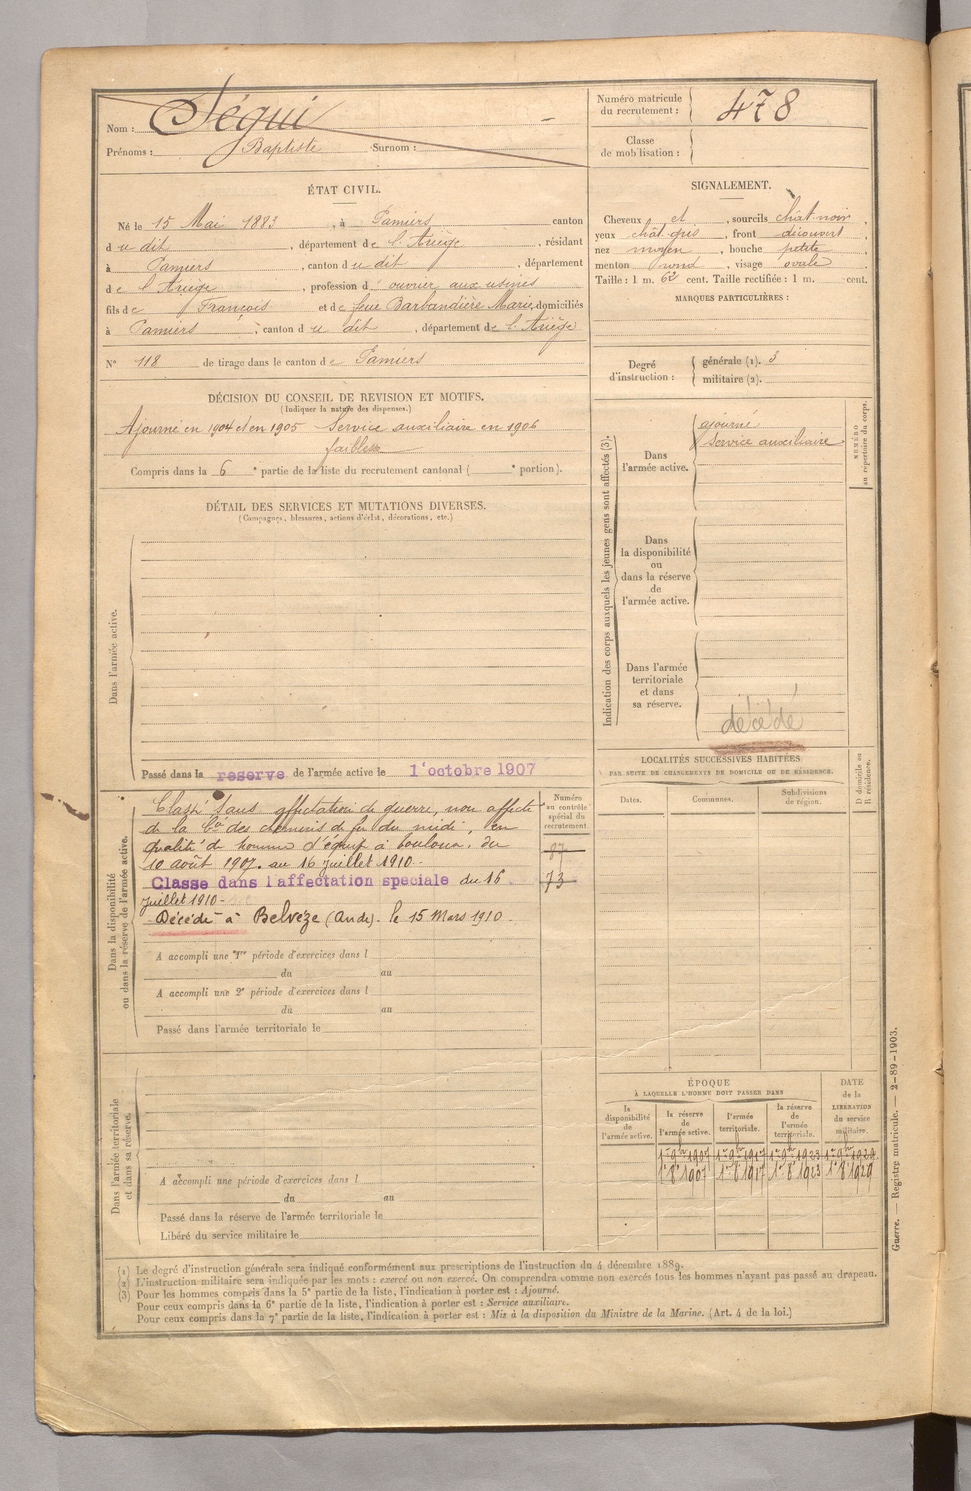 Nom : Ségui
Prénoms : Baptiste Surnom : -
Numéro matricule du recrutement : 478
Classe de mobilisation :
ÉTAT CIVIL.
Né le 15 Mai 1883, à Pamiers canton
d u dit, département de l'Ariège, résidant
à Pamiers, canton du dit, département
de l'Ariège, profession d'ouvrier aux usines
fils de François et de feue Barbandière Marie domiciliés
à Pamiers, canton du dit, département de l'Ariège
N° 118 de tirage dans le canton de Pamiers
SIGNALEMENT.
Cheveux et, sourcils chât-noir,
yeux chât-gris, front découvert,
nez moyen, bouche petite,
menton rond, visage ovale,
Taille : 1 m. 62 cent. Taille rectifiée : 1 m. cent.
MARQUES PARTICULIÈRES :
Degré d'instruction :
générale (1). 3
militaire (2).
DÉCISION DU CONSEIL DE REVISION ET MOTIFS.
(Indiquer la nature des dispenses.)
Ajourné en 1904 et en 1905 Service auxiliaire en 1906
faiblesse
Compris dans la 6e partie de la liste du recrutement cantonal ( e portion).
DÉTAIL DES SERVICES ET MUTATIONS DIVERSES.
(Campagnes, blessures, actions d'éclat, décorations, etc.)
Dans l'armée active.
Passé dans la reserve de l'armée active le 1er octobre 1907
Indication des corps auxquels les jeunes gens sont affectés (3).
Dans l'armée active.
ajourné
Service auxiliaire
NUMÉRO au répertoire du corps.
Dans la disponibilité ou dans la réserve de l'armée active.
Dans l'armée territoriale et dans sa réserve.
décédé
Dans la disponibilité ou dans la réserve de l'armée active.
Classé sans affectation de guerre, non affecté
de la Cie des chemins de fer du midi, en
qualité de homme d'équipe à Toulouse, du
10 août 1907 au 16 juillet 1910 -
Classe dans l'affectation speciale du 16
juillet 1910 -
- Décédé à Belvèze (Aude). le 15 Mars 1910 .
Numéro au contrôle spécial du recrutement.
87
73
A accompli une 1re période d'exercices dans l
du au
A accompli une 2e période d'exercices dans l
du au
Passé dans l'armée territoriale le
LOCALITÉS SUCCESSIVES HABITÉES
PAR SUITE DE CHANGEMENTS DE DOMICILE OU DE RÉSIDENCE.
Dates. Communes. Subdivisions de région.
D domicile ou R résidence.
Dans l'armée territoriale et dans sa réserve.
A accompli une période d'exercices dans l
du au
Passé dans la réserve de l'armée territoriale le
Libéré du service militaire le
ÉPOQUE
À LAQUELLE L'HOMME DOIT PASSER DANS
la disponibilité de l'armée active.
la réserve de l'armée active.
l'armée territoriale.
la réserve de l'armée territoriale.
DATE de la LIBÉRATION du service militaire.
1er 9bre 1907 1er 9bre 1917 1er 9bre 1923 1er 9bre 1929
1er 8bre 1907 1er 8bre 1917 1er 8bre 1923 1er 8bre 1929
Guerre. — Registre matricule. — 2-89-1903.
(1) Le degré d'instruction générale sera indiqué conformément aux prescriptions de l'instruction du 4 décembre 1889.
(2) L'instruction militaire sera indiquée par les mots : exercé ou non exercé. On comprendra comme non exercés tous les hommes n'ayant pas passé au drapeau.
(3) Pour les hommes compris dans la 5e partie de la liste, l'indication à porter est : Ajourné.
Pour ceux compris dans la 6e partie de la liste, l'indication à porter est : Service auxiliaire.
Pour ceux compris dans la 7e partie de la liste, l'indication à porter est : Mis à la disposition du Ministre de la Marine. (Art. 4 de la loi.)